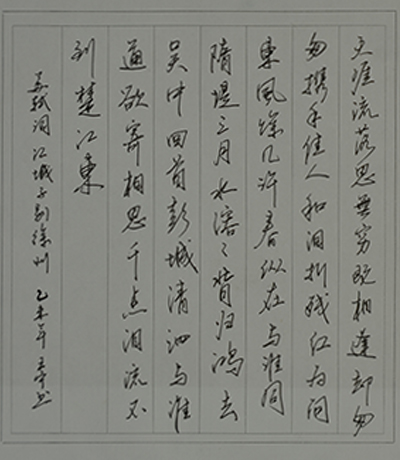 天涯流落思無穷既相逢却匆
匆携手佳人和泪折残红为问
東風馀几许春纵在与谁同
隋堤三月水溶〻背归鸿去
吴中回首彭城清泗与淮
通欲寄相思千点泪流不
到楚江東
苏轼词江城子别徐州 乙未年 书